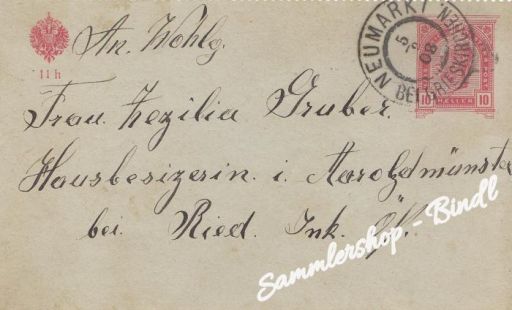 11 h
An. Wohlg.
NEUMARKT
BEI GRIESKIRCHEN
5/5 08
10 HELLER 10
Frau Kezilia Gruber.
Hausbesizerin i. Aaroldmünster
bei Ried. Ink. Öst.
Sammlershop - Bindl